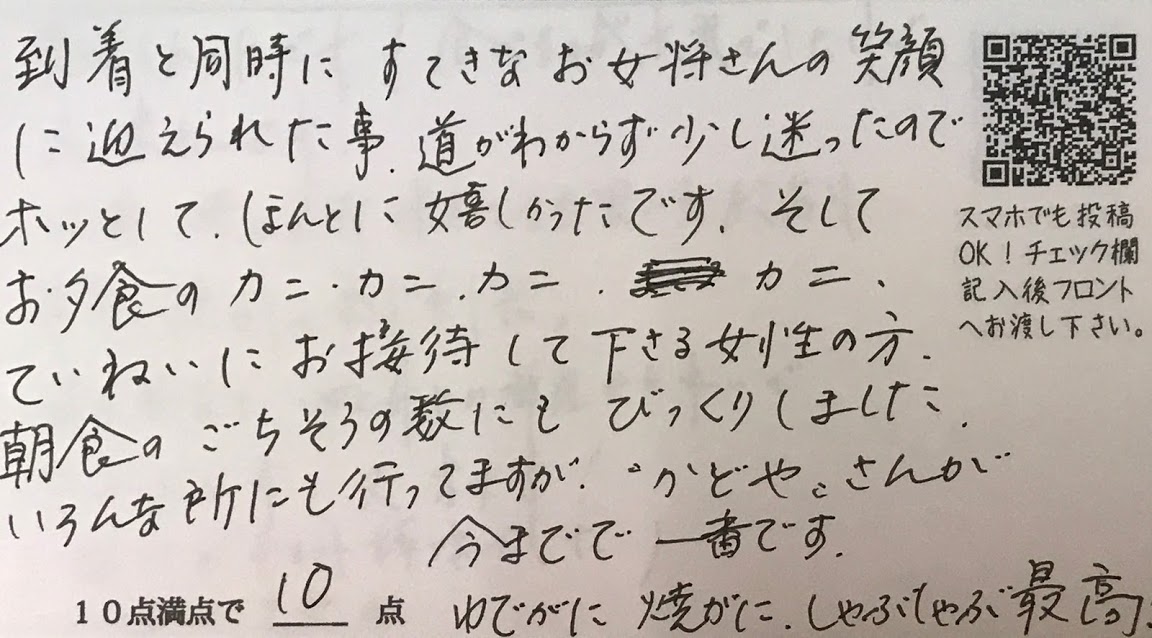 到着と同時に すてきなお女将さんの笑顔
に迎えられた事、道がわからず少し迷ったので
ホッとして、ほんとに嬉しかったです。そして
お夕食のカニ・カニ、カニ、カニ、
ていねいにお接待して下さる女性の方、
朝食のごちそうの数にもびっくりしました、
いろんな所にも行ってますが、"かどや"さんが
今までで一番です。
10点満点で 10 点
ゆでがに 焼がに、しゃぶしゃぶ最高!
スマホでも投稿
OK!チェック欄
記入後フロント
へお渡し下さい。